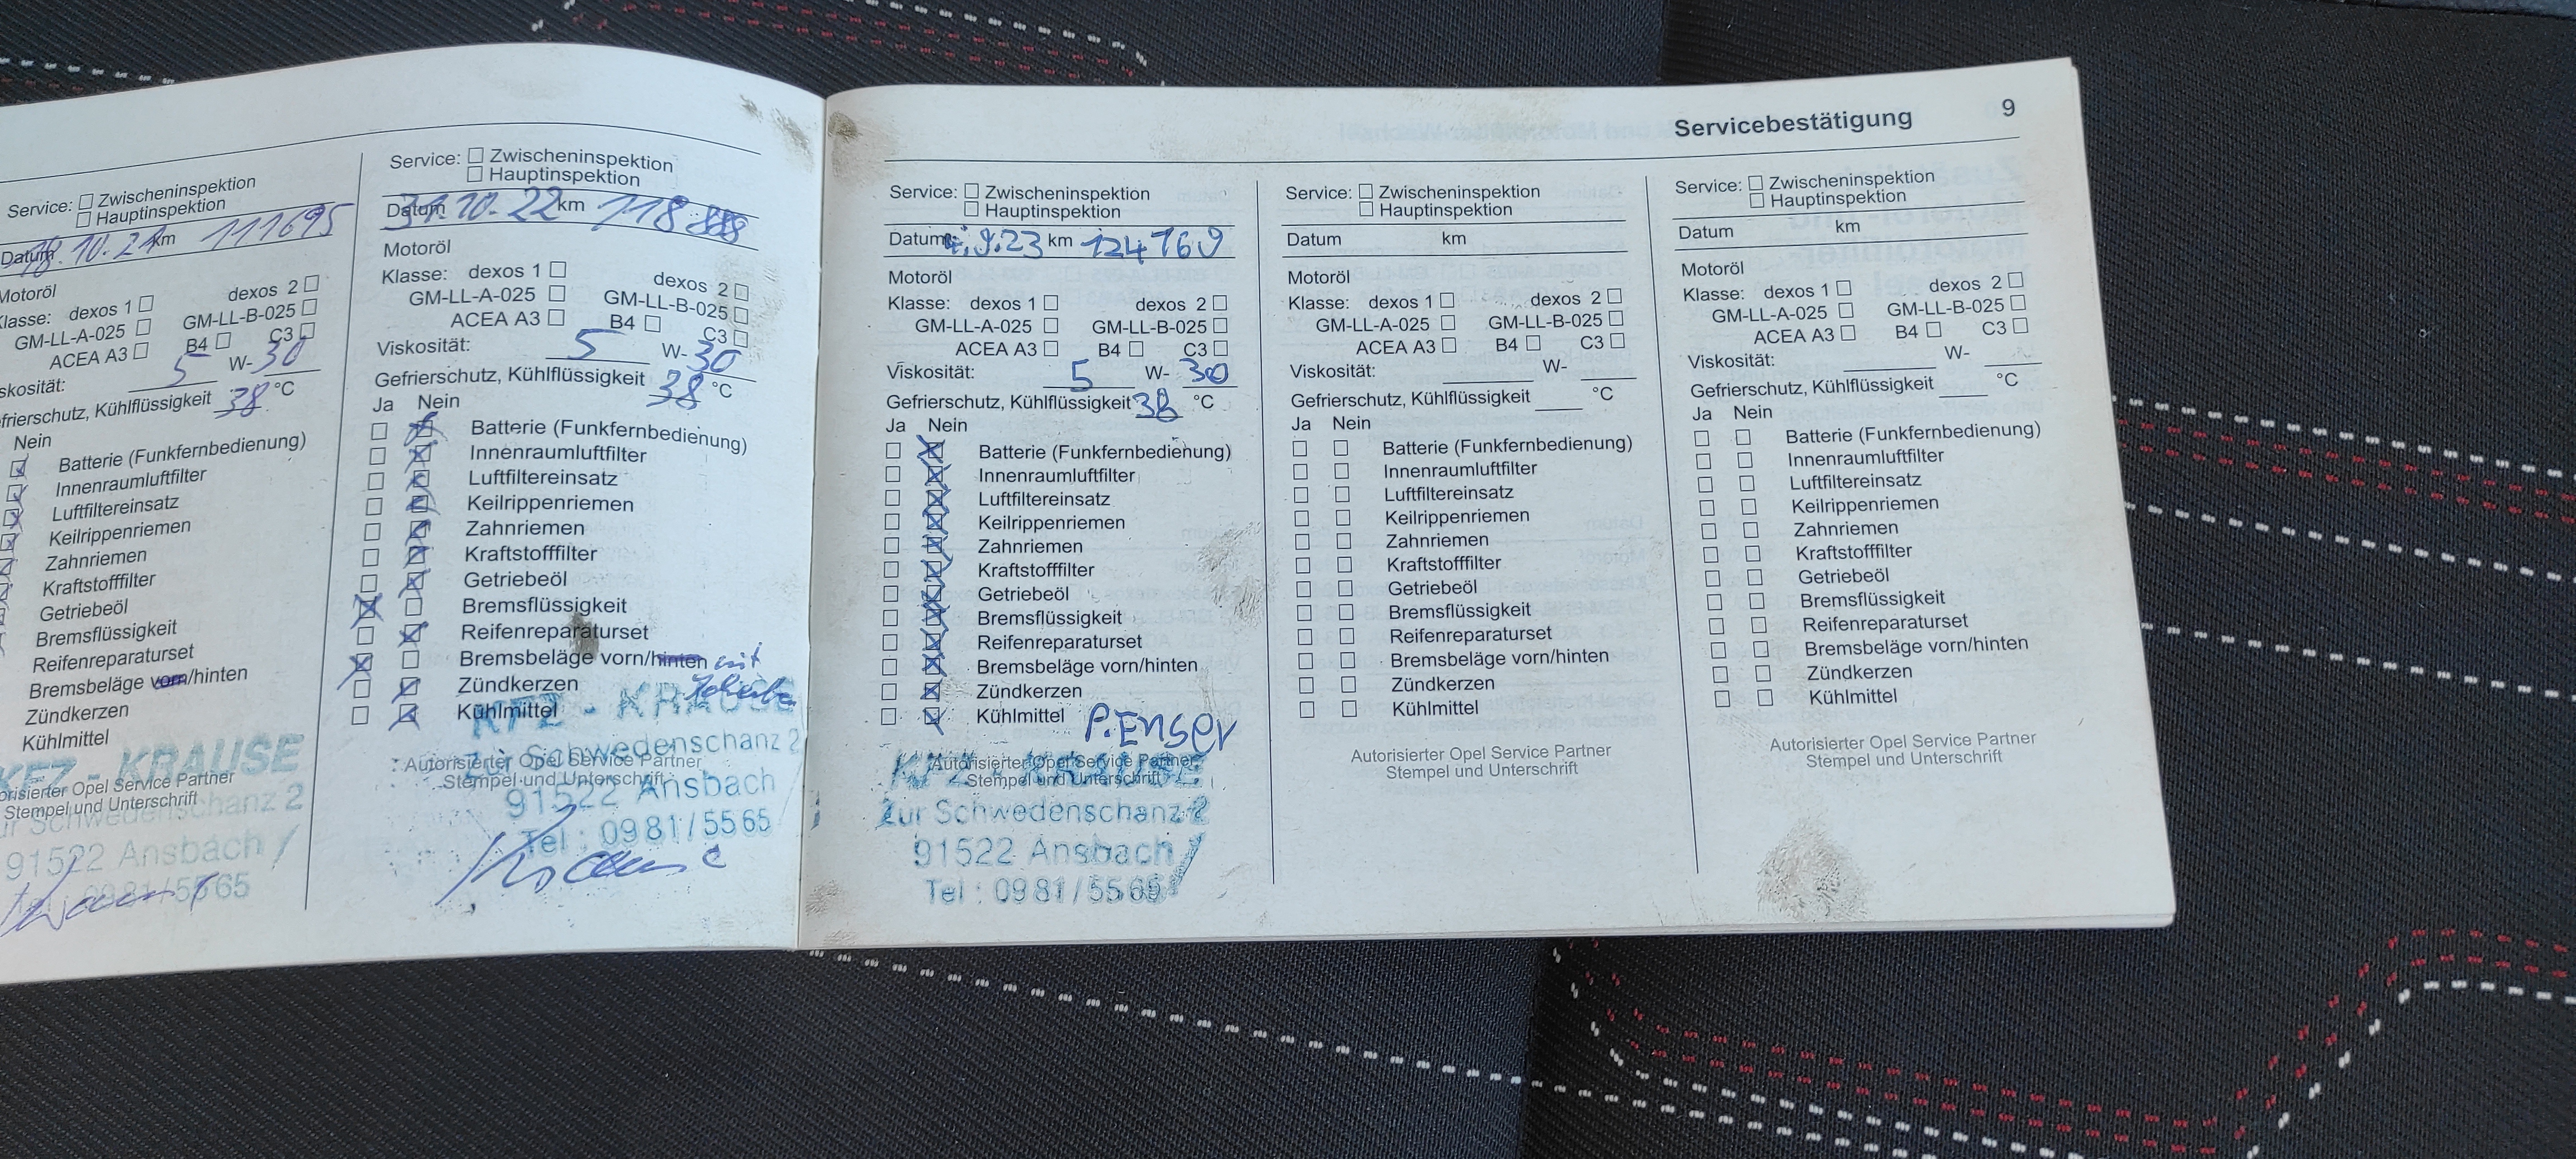 Servicebestätigung 9
Service: Zwischeninspektion
Hauptinspektion
Datum 18.10.21 km 111695
Motoröl
Klasse: dexos 1 dexos 2
GM-LL-A-025 GM-LL-B-025
ACEA A3 B4 C3
skosität: 5 W-30
frierschutz, Kühlflüssigkeit 38 °C
Nein
Batterie (Funkfernbedienung)
Innenraumluftfilter
Luftfiltereinsatz
Keilrippenriemen
Zahnriemen
Kraftstofffilter
Getriebeöl
Bremsflüssigkeit
Reifenreparaturset
Bremsbeläge vorn/hinten
Zündkerzen
Kühlmittel
KFZ - KRAUSE
orisierter Opel Service Partner
Stempel und Unterschrift
ur Schwedenschanz 2
91522 Ansbach
0981/5565
Service: Zwischeninspektion
Hauptinspektion
Datum 31.10.22 km 118
Motoröl
Klasse: dexos 1 dexos 2
GM-LL-A-025 GM-LL-B-025
ACEA A3 B4 C3
Viskosität: 5 W-30
Gefrierschutz, Kühlflüssigkeit 38 °C
Ja Nein
Batterie (Funkfernbedienung)
Innenraumluftfilter
Luftfiltereinsatz
Keilrippenriemen
Zahnriemen
Kraftstofffilter
Getriebeöl
Bremsflüssigkeit
Reifenreparaturset
Bremsbeläge vorn/hinten mit
Zündkerzen
Kühlmittel
KFZ - KRAUSE
Zur Schwedenschanz 2
Autorisierter Opel Service Partner
Stempel und Unterschrift
91522 Ansbach
Tel : 0981/5565
Krause
Service: Zwischeninspektion
Hauptinspektion
Datum 9.23 km 124769
Motoröl
Klasse: dexos 1 dexos 2
GM-LL-A-025 GM-LL-B-025
ACEA A3 B4 C3
Viskosität: 5 W- 30
Gefrierschutz, Kühlflüssigkeit 38 °C
Ja Nein
Batterie (Funkfernbedienung)
Innenraumluftfilter
Luftfiltereinsatz
Keilrippenriemen
Zahnriemen
Kraftstofffilter
Getriebeöl
Bremsflüssigkeit
Reifenreparaturset
Bremsbeläge vorn/hinten
Zündkerzen
Kühlmittel P. Enser
KFZ - KRAUSE
Autorisierter Opel Service Partner
Stempel und Unterschrift
Zur Schwedenschanz 2
91522 Ansbach
Tel : 0981/5565
Service: Zwischeninspektion
Hauptinspektion
Datum km
Motoröl
Klasse: dexos 1 dexos 2
GM-LL-A-025 GM-LL-B-025
ACEA A3 B4 C3
Viskosität: W-
Gefrierschutz, Kühlflüssigkeit °C
Ja Nein
Batterie (Funkfernbedienung)
Innenraumluftfilter
Luftfiltereinsatz
Keilrippenriemen
Zahnriemen
Kraftstofffilter
Getriebeöl
Bremsflüssigkeit
Reifenreparaturset
Bremsbeläge vorn/hinten
Zündkerzen
Kühlmittel
Autorisierter Opel Service Partner
Stempel und Unterschrift
Service: Zwischeninspektion
Hauptinspektion
Datum km
Motoröl
Klasse: dexos 1 dexos 2
GM-LL-A-025 GM-LL-B-025
ACEA A3 B4 C3
Viskosität: W-
Gefrierschutz, Kühlflüssigkeit °C
Ja Nein
Batterie (Funkfernbedienung)
Innenraumluftfilter
Luftfiltereinsatz
Keilrippenriemen
Zahnriemen
Kraftstofffilter
Getriebeöl
Bremsflüssigkeit
Reifenreparaturset
Bremsbeläge vorn/hinten
Zündkerzen
Kühlmittel
Autorisierter Opel Service Partner
Stempel und Unterschrift